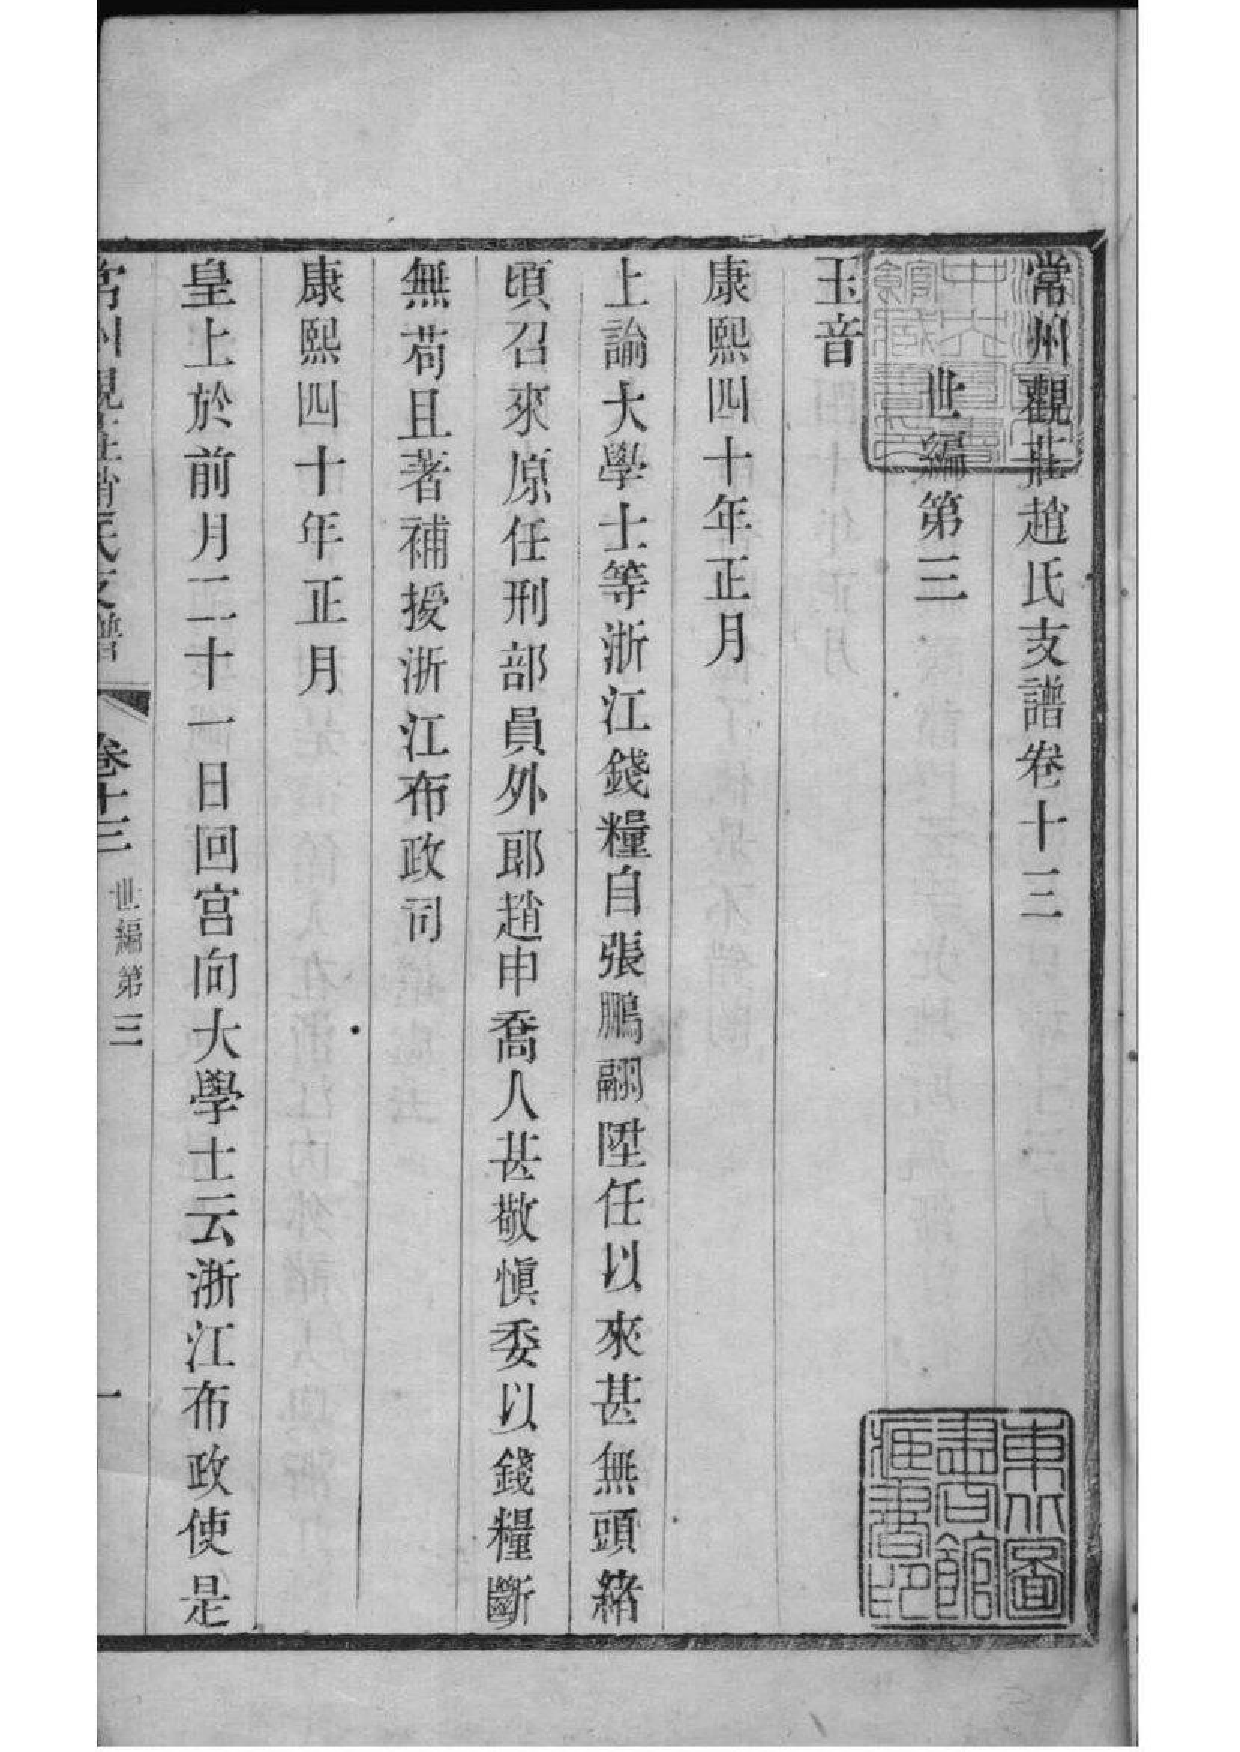 常州觀莊趙氏支譜卷十三
世編第三
玉音
康熙四十年正月
上諭大學士等浙江錢糧自張鵬翮陞任以來甚無頭緒
頃召來原任刑部員外郎趙申喬人甚敬慎委以錢糧斷
無苟且著補授浙江布政司
康熙四十年正月
皇上於前月二十一日回宮向大學士云浙江布政使是
常州觀莊趙氏支譜
卷十三
世編第三
一
東北圖書館藏書印